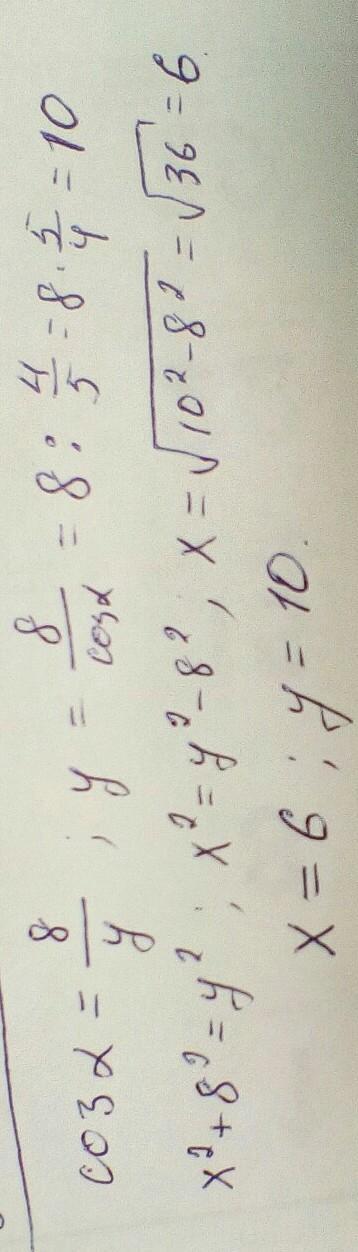 cosα = 8/y ; y = 8/cosα = 8 : 4/5 = 8 · 5/4 = 10
x² + 8² = y² ; x² = y² - 8² ; x = √(10² - 8²) = √36 = 6.
x = 6 ; y = 10.